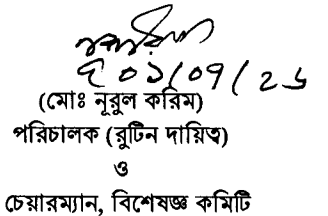 ০১/০৭/২৬
(মোঃ নূরুল করিম)
পরিচালক (রুটিন দায়িত্ব)
ও
চেয়ারম্যান, বিশেষজ্ঞ কমিটি